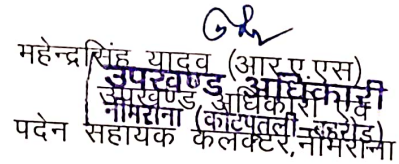 महेन्द्रसिंह यादव (आर.ए.एस)
उपखण्ड अधिकारी
उपखण्ड अधिकारी एवं
नीमराना (कोटपूतली-बहरोड़)
पदेन सहायक कलेक्टर, नीमराना